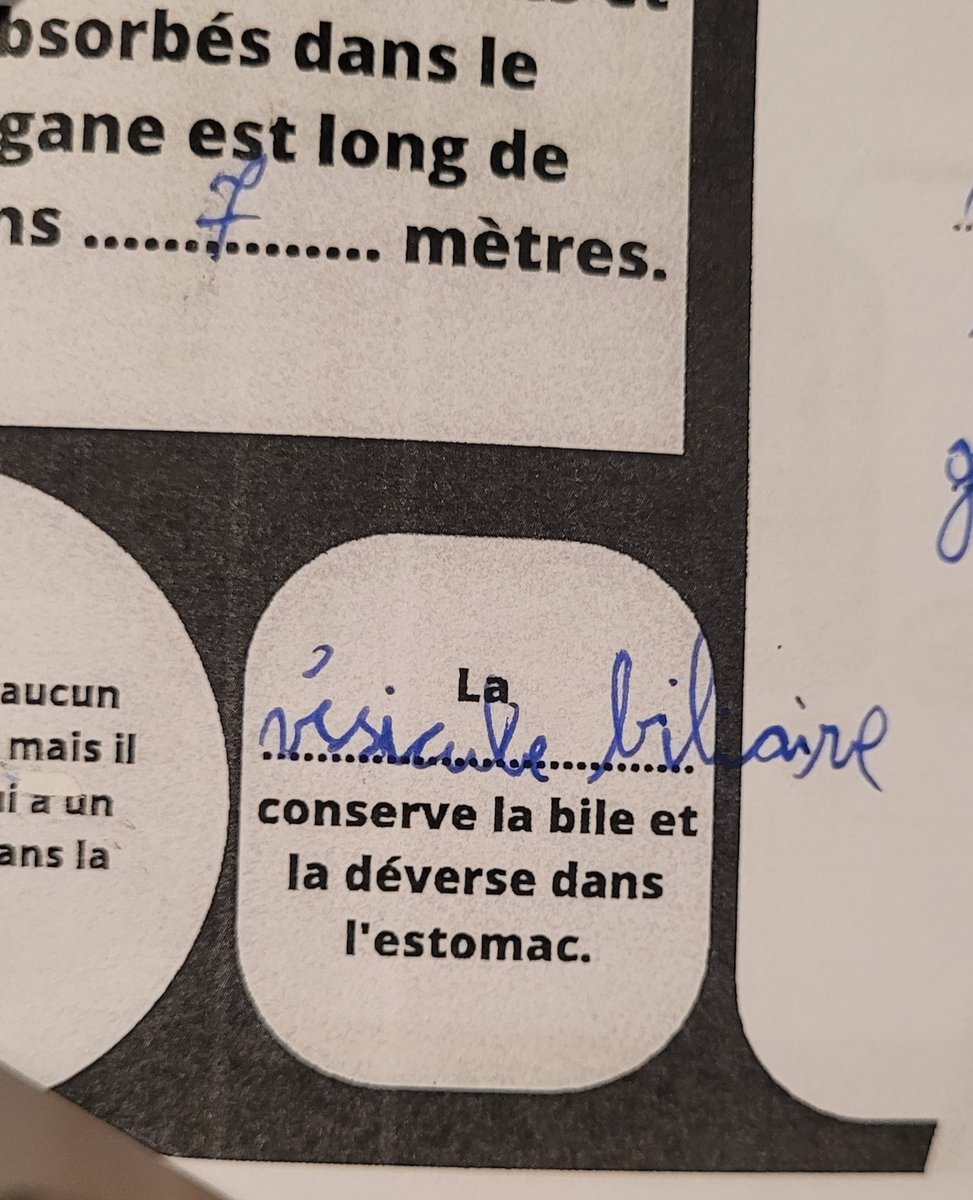 absorbés dans le
gane est long de
ns ........7........ mètres.
aucun
mais il
i a un
ans la
La
vésicule biliaire
conserve la bile et
la déverse dans
l'estomac.
g